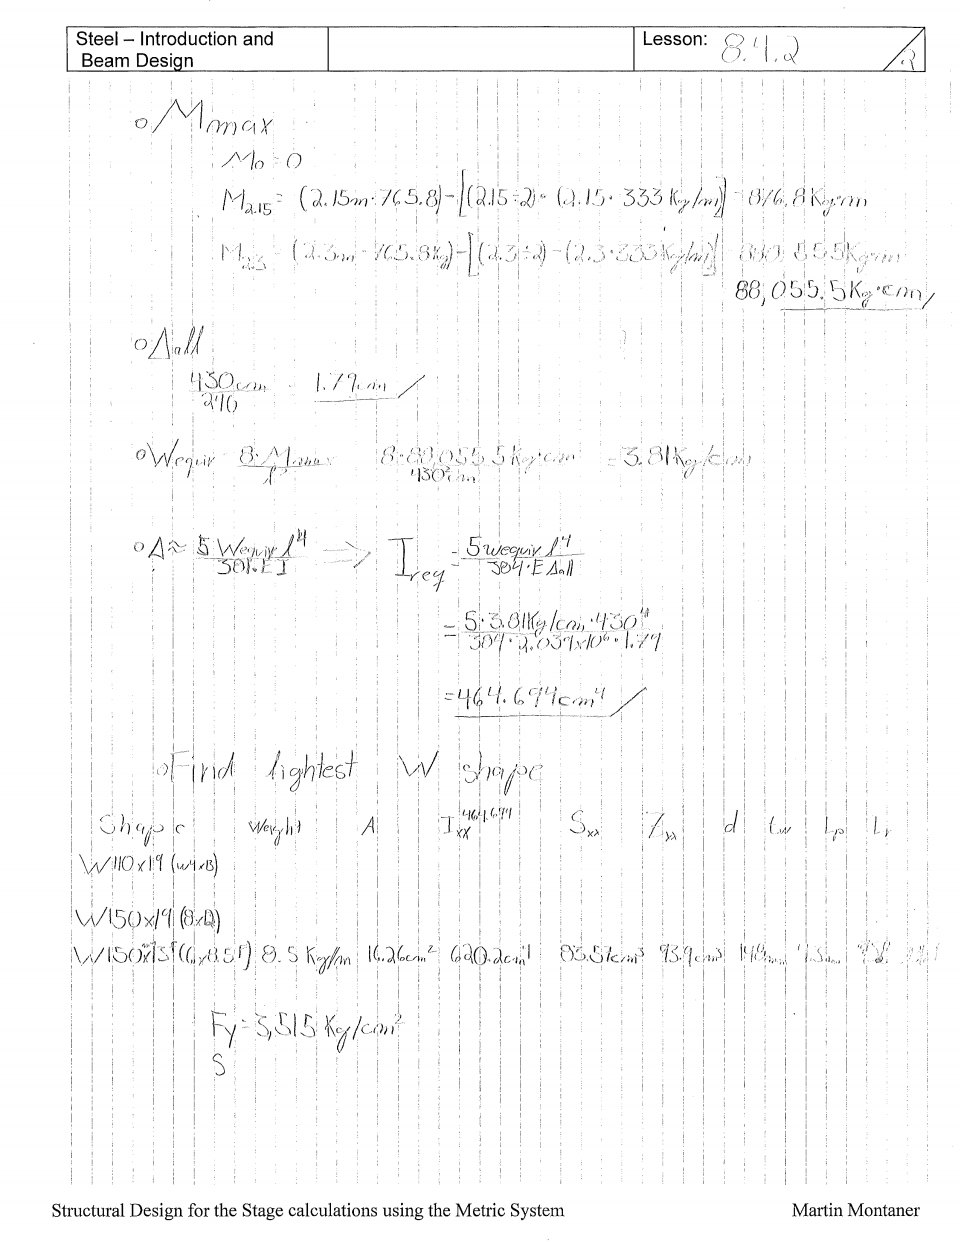 Steel – Introduction and
Beam Design
Lesson: 8.4.2
2
o Mmax
Mo = 0
M2.15 = (2.15m · 765.8) - [(2.15÷2) · (2.15 · 333 Kg/m)] = 876.8 Kg·m
M2.3 = (2.3m · 765.8Kg) - [(2.3÷2) - (2.3 · 333Kg/m)] = 880.555Kg·m
88,055.5Kg·cm
o Δall
430cm 1.79cm
240
o Wequiv 8·Mmax 8·88,055.5Kg·cm = 3.81Kg/cm
l² 430²cm
o Δ ≈ 5 Wequiv l⁴ => Ireq = 5 wequiv l⁴
384·EI 384·E Δall
= 5·3.81Kg/cm·430⁴
384·2.039x10⁶·1.79
= 464.694cm⁴
o Find lightest W shape
Shape Weight A Ixx 464.694 Sxx Zxx d tw Lp Lr
W110x19 (w4x13)
W150x19 (8x12)
W150x13 (6x8.5) 8.5 Kg/m 16.26cm² 620.2cm⁴ 83.57cm³ 93.9cm³ 148mm
Fy = 3,515 Kg/cm²
S
Structural Design for the Stage calculations using the Metric System
Martin Montaner